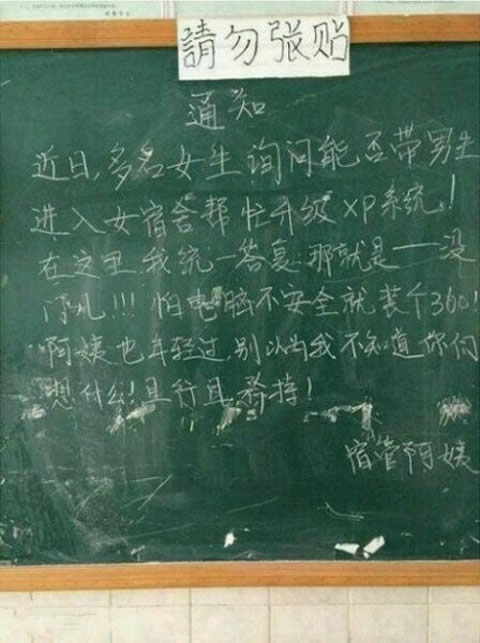 請勿张贴
通知
近日,多名女生询问能否带男生
进入女宿舍帮忙升级XP系统!
在这里我统一答复.那就是——没
门儿!!!怕电脑不安全就装个360!
啊姨也年轻过,别以为我不知道你们
想什么!且行且珍惜!
宿管阿姨